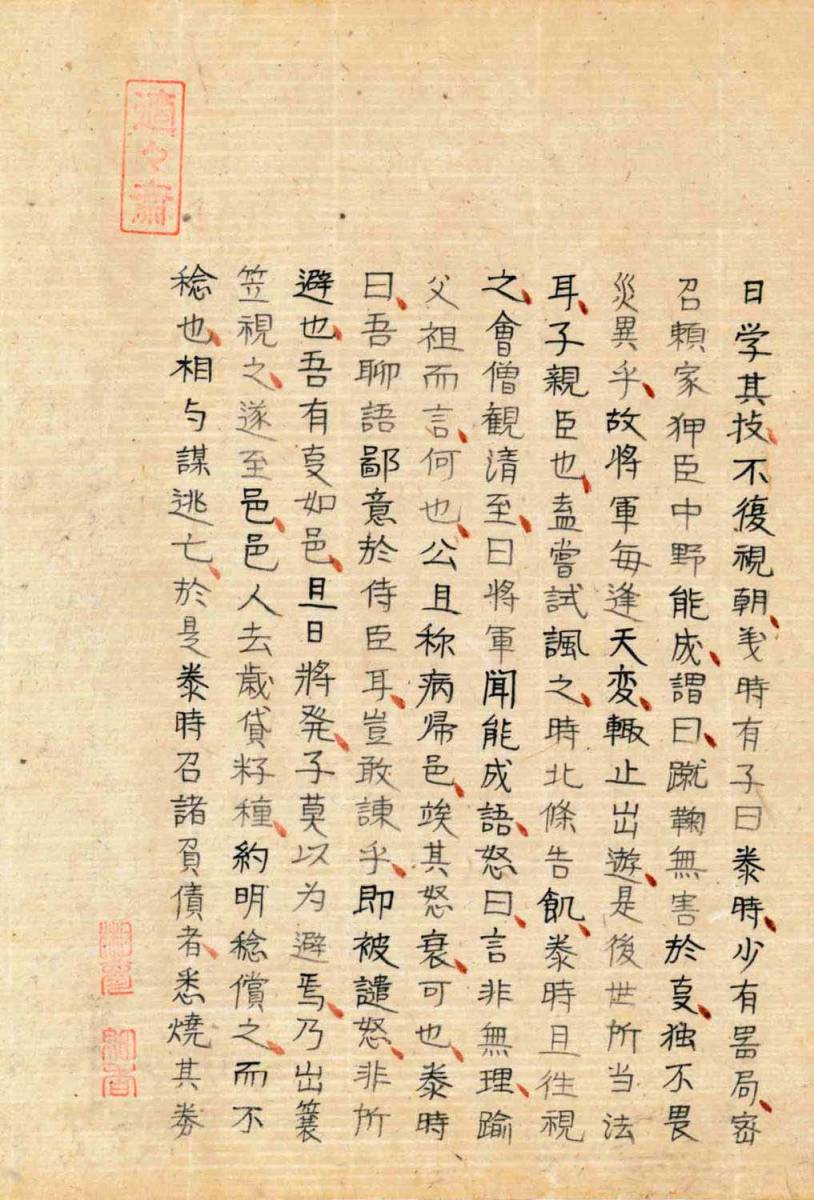 日学其技不復視朝义時有子曰泰時少有器局密
召頼家狎臣中野能成謂曰蹴鞠無害於㕝独不畏
災異乎故将軍毎逢天変輙止出遊是後世所当法
耳子親臣也盍嘗試諷之時北條告飢泰時且往視
之會僧観清至曰将軍聞能成語怒曰言非無理踰
父祖而言何也公且称病帰邑竢其怒衰可也泰時
曰吾聊語鄙意於侍臣耳豈敢諌乎即被譴怒非所
避也吾有㕝如邑旦日将発子莫以为避焉乃出簑
笠視之遂至邑邑人去歳貸籽種約明稔償之而不
稔也相与謀逃亡於是泰時召諸負債者悉燒其券
適々斎